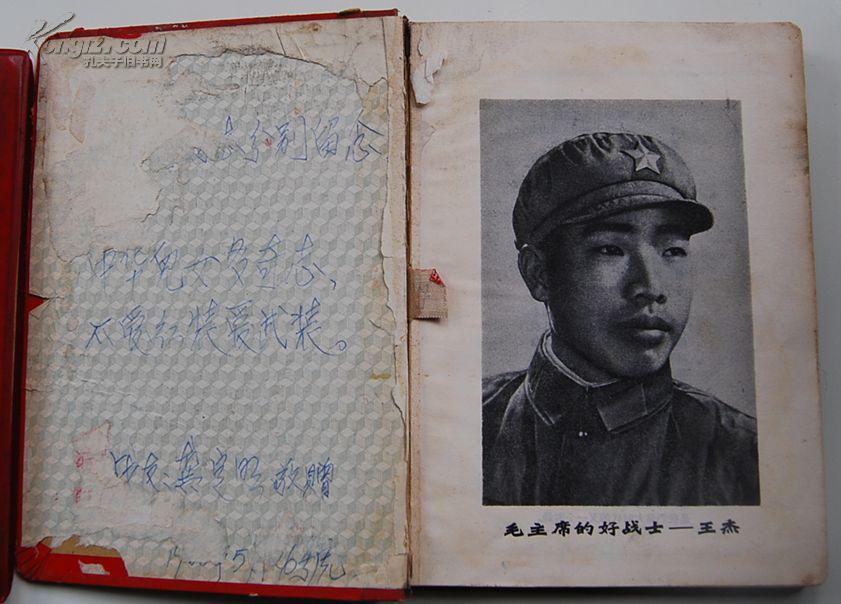 Kongfz.com
孔夫子旧书网
分别留念
中华儿女多奇志，
不爱红装爱武装。
敬赠
毛主席的好战士——王杰